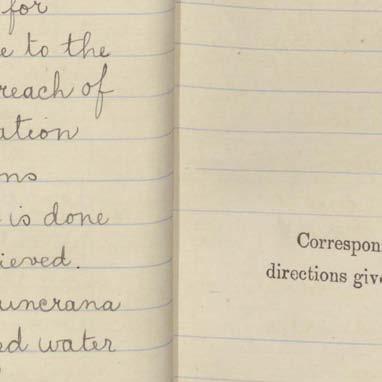 for
e to the
reach of
ation
ns
is done
ieved.
uncrana
ed water
Correspon
directions give